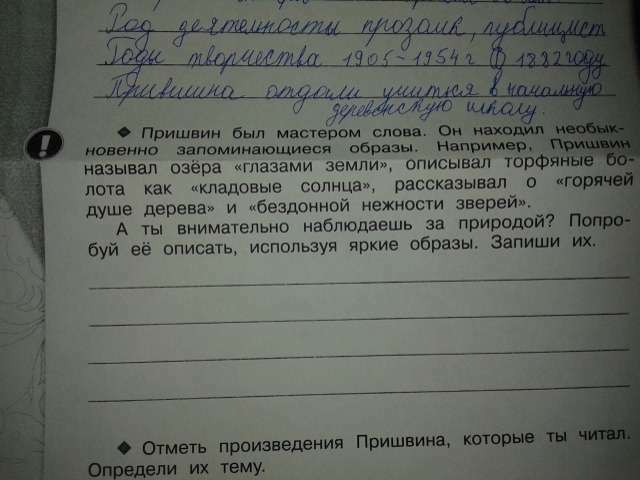 Род деятельности прозаик, публицист
Годы творчества 1905-1954г В 1882 году
Пришвина отдали учиться в начальную
деревенскую школу.
! ◆ Пришвин был мастером слова. Он находил необык-
новенно запоминающиеся образы. Например, Пришвин
называл озёра «глазами земли», описывал торфяные бо-
лота как «кладовые солнца», рассказывал о «горячей
душе дерева» и «бездонной нежности зверей».
А ты внимательно наблюдаешь за природой? Попро-
буй её описать, используя яркие образы. Запиши их.
◆ Отметь произведения Пришвина, которые ты читал.
Определи их тему.